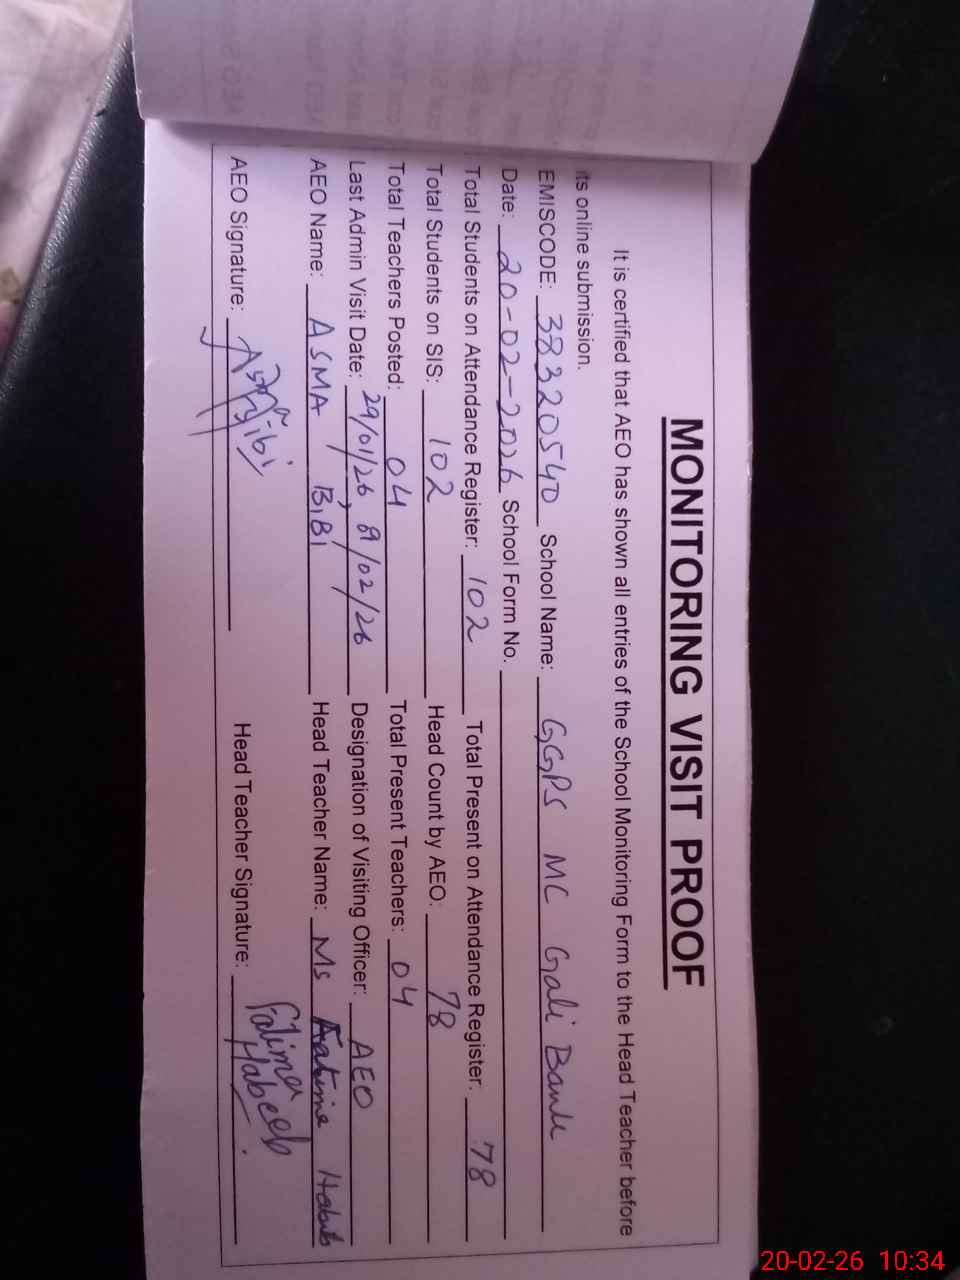 MONITORING VISIT PROOF
It is certified that AEO has shown all entries of the School Monitoring Form to the Head Teacher before
its online submission.
EMISCODE: 38320540 School Name: GGPS MC Gali Banle
Date: 20-02-2026 School Form No.
Total Students on Attendance Register: 102 Total Present on Attendance Register. 78
Total Students on SIS: 102 Head Count by AEO: 78
Total Teachers Posted: 04 Total Present Teachers: 04
Last Admin Visit Date: 29/01/26, 09/02/26 Designation of Visiting Officer: AEO
AEO Name: ASMA BiBi Head Teacher Name: Ms Fatime Habib
AEO Signature: Asma Bibi Head Teacher Signature: Fatima Habeeb
20-02-26 10:34